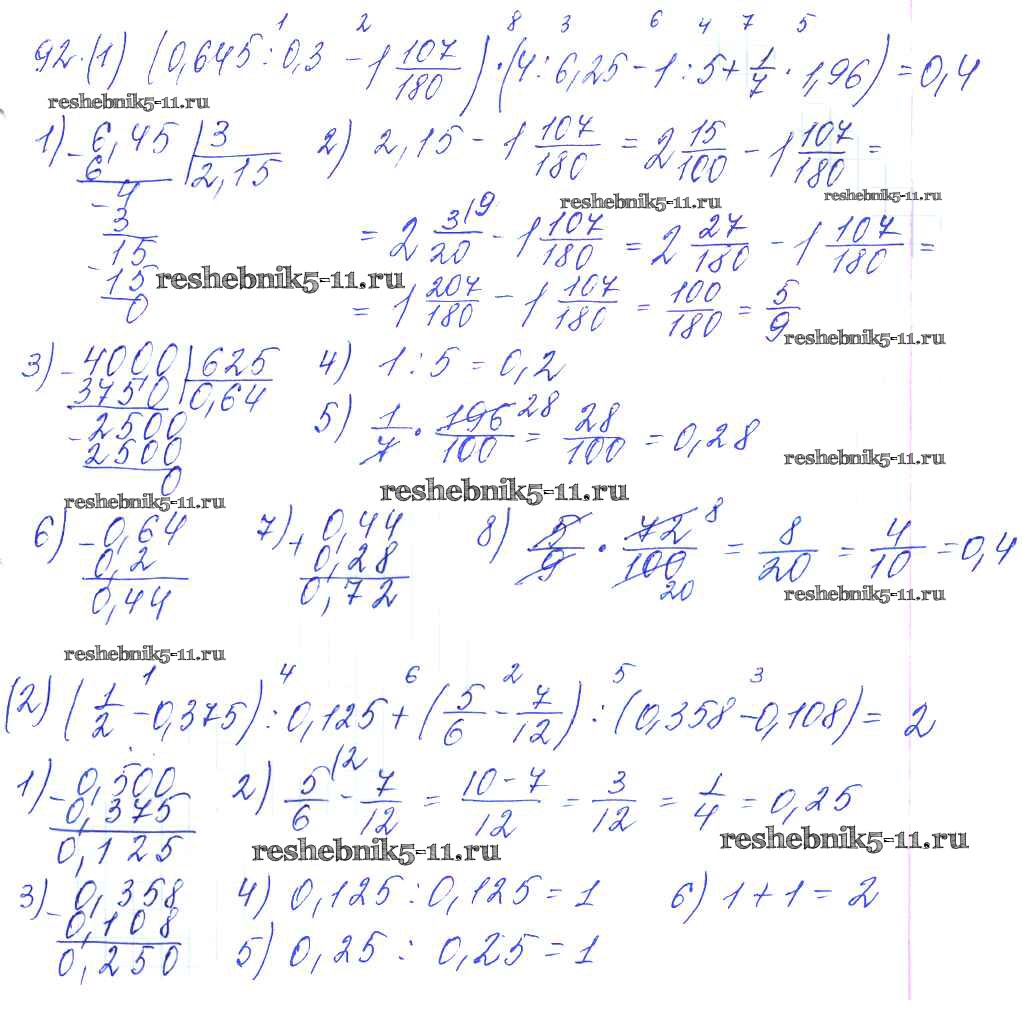 92.(1) (0,645 : 0,3 - 1 107/180) · (4 : 6,25 - 1 : 5 + 1/7 · 1,96) = 0,4
1 2 8 3 6 4 7 5
reshebnik5-11.ru
1) 6,45 | 3
2,15
- 6
4
- 3
15
- 15
0
2) 2,15 - 1 107/180 = 2 15/100 - 1 107/180 =
reshebnik5-11.ru
reshebnik5-11.ru
= 2 3/20 (9 - 1 107/180 = 2 27/180 - 1 107/180 =
reshebnik5-11.ru
= 1 207/180 - 1 107/180 = 100/180 = 5/9
reshebnik5-11.ru
3) 4000 | 625
- 3750 0,64
2500
- 2500
0
4) 1 : 5 = 0,2
5) 1/7 · 196/100 28 = 28/100 = 0,28
reshebnik5-11.ru
reshebnik5-11.ru
reshebnik5-11.ru
6) - 0,64
0,2
0,44
7) + 0,44
0,28
0,72
8) 5/9 · 72/100 8 20 = 8/20 = 4/10 = 0,4
reshebnik5-11.ru
reshebnik5-11.ru
1 4 6 2 5 3
(2) (1/2 - 0,375) : 0,125 + (5/6 - 7/12) : (0,358 - 0,108) = 2
1) - 0,500
0,375
0,125
2) 5/6 (2 - 7/12 = 10-7/12 = 3/12 = 1/4 = 0,25
reshebnik5-11.ru
reshebnik5-11.ru
3) - 0,358
0,108
0,250
4) 0,125 : 0,125 = 1
6) 1 + 1 = 2
5) 0,25 : 0,25 = 1